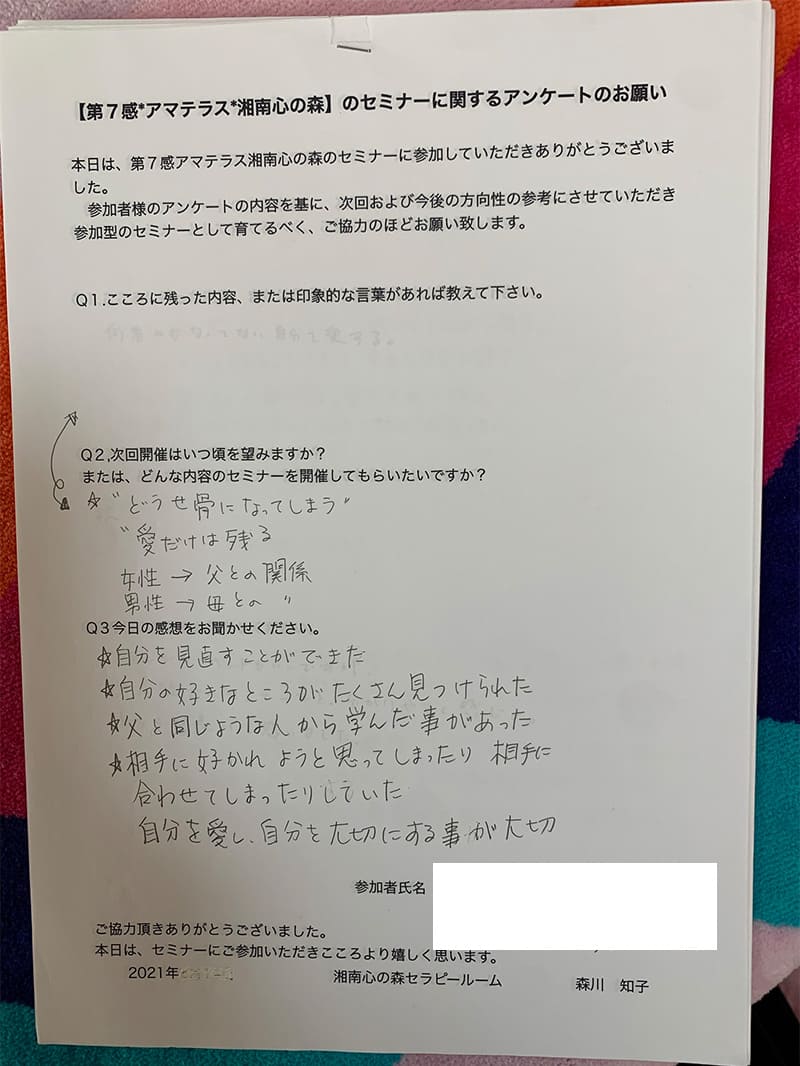 【第７感*アマテラス*湘南心の森】のセミナーに関するアンケートのお願い
本日は、第７感アマテラス湘南心の森のセミナーに参加していただきありがとうございま
した。
参加者様のアンケートの内容を基に、次回および今後の方向性の参考にさせていただき
参加型のセミナーとして育てるべく、ご協力のほどお願い致します。
Ｑ１.こころに残った内容、または印象的な言葉があれば教えて下さい。
Ｑ２,次回開催はいつ頃を望みますか？
または、どんな内容のセミナーを開催してもらいたいですか？
☆ "どうせ骨になってしまう"
"愛だけは残る
女性 → 父との関係
男性 → 母との 〃
Ｑ３今日の感想をお聞かせください。
☆自分を見直すことができた
☆自分の好きなところがたくさん見つけられた
☆父と同じような人から学んだ事があった
☆相手に好かれようと思ってしまったり 相手に
合わせてしまったりしていた
自分を愛し、自分を大切にする事が大切
参加者氏名
ご協力頂きありがとうございました。
本日は、セミナーにご参加いただきこころより嬉しく思います。
2021年
湘南心の森セラピールーム 森川 知子